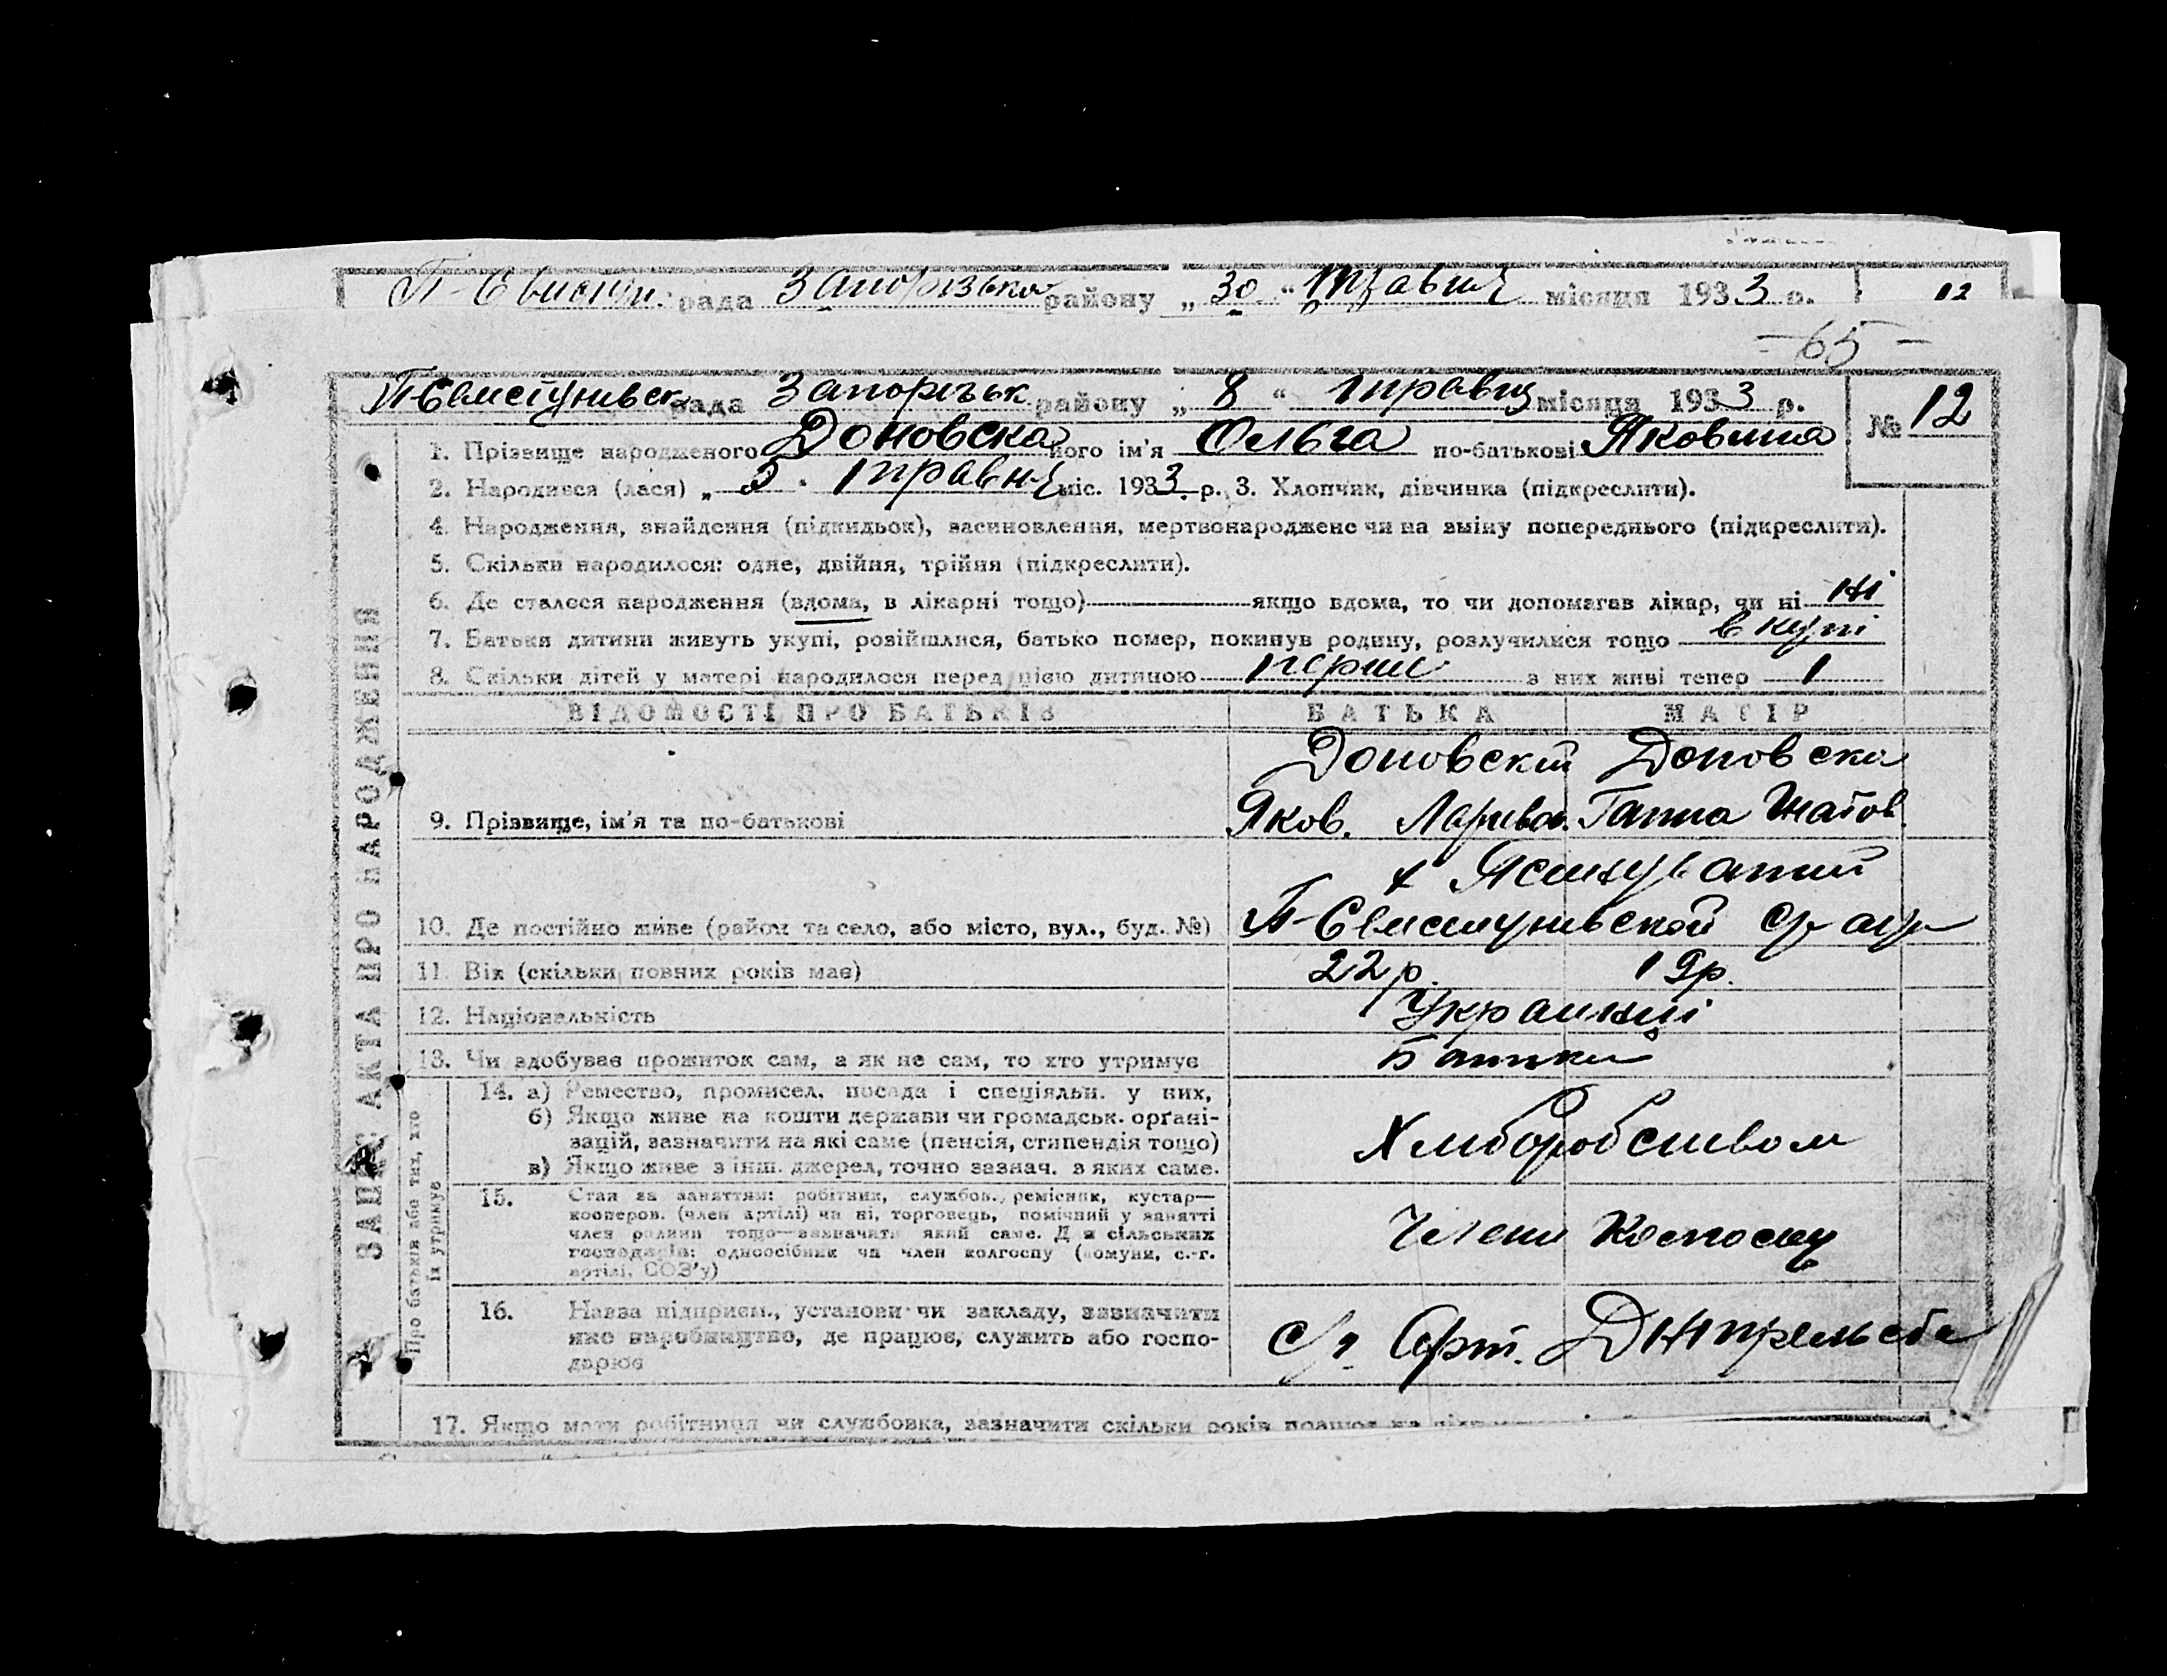 рада Запорізька району „ 30 “ травня місяця 1933 р. 12
- 65 -
рада Запорізьк району „ 8 “ травня місяця 1933 р. № 12
1. Прізвище народженого Доновска його ім'я Ольга по-батькові Яковина
2. Народився (лася) „ 5 . травня міс. 1933 р. 3. Хлопчик, дівчинка (підкреслити).
4. Народження, знайдення (підкидьок), засиновлення, мертвонароджене чи на зміну попереднього (підкреслити).
5. Скільки народилося: одне, двійня, трійня (підкреслити).
6. Де сталося народження (вдома, в лікарні тощо) якщо вдома, то чи допомагав лікар, чи ні ні
7. Батьки дитини живуть укупі, розійшлися, батько помер, покинув родину, розлучилися тощо вкупі
8. Скільки дітей у матері народилося перед цією дитиною перше з них живі тепер 1
ВІДОМОСТІ ПРО БАТЬКІВ БАТЬКА МАТІР
Доновский Доновска
9. Прізвище, ім'я та по-батькові Яков. Ларивон. Ганна
х
10. Де постійно живе (район та село, або місто, вул., буд. №)
11. Вік (скільки повних років має) 22 р. 19 р.
12. Національність Украинці
13. Чи здобуває прожиток сам, а як не сам, то хто утримує Батьки
14. а) Ремество, промисел, посада і спеціяльн. у них,
б) Якщо живе на кошти держави чи громадськ. орґані-
зацій, зазначити на які саме (пенсія, стипендія тощо)
в) Якщо живе з інш. джерел, точно зазнач. з яких саме.
Хлиборобством
15. Стан за заняттям: робітник, службов., ремісник, кустар—
кооперов. (член артілі) чи ні, торговець, помічний у занятті
член родини тощо—зазначити який саме. Для сільських
господарів: одноосібник чи член колгоспу (комуни, с.-г.
артілі, СОЗ'у)
Члени
16. Назва підприєм., установи чи закладу, зазначити
яке виробництво, де працює, служить або госпо-
дарює
Арт.
17. Якщо мати робітниця чи службовка, зазначити скільки років працює на
ЗАПИС АКТА ПРО НАРОДЖЕННЯ
Про батьків або тих, хто
їх утримує